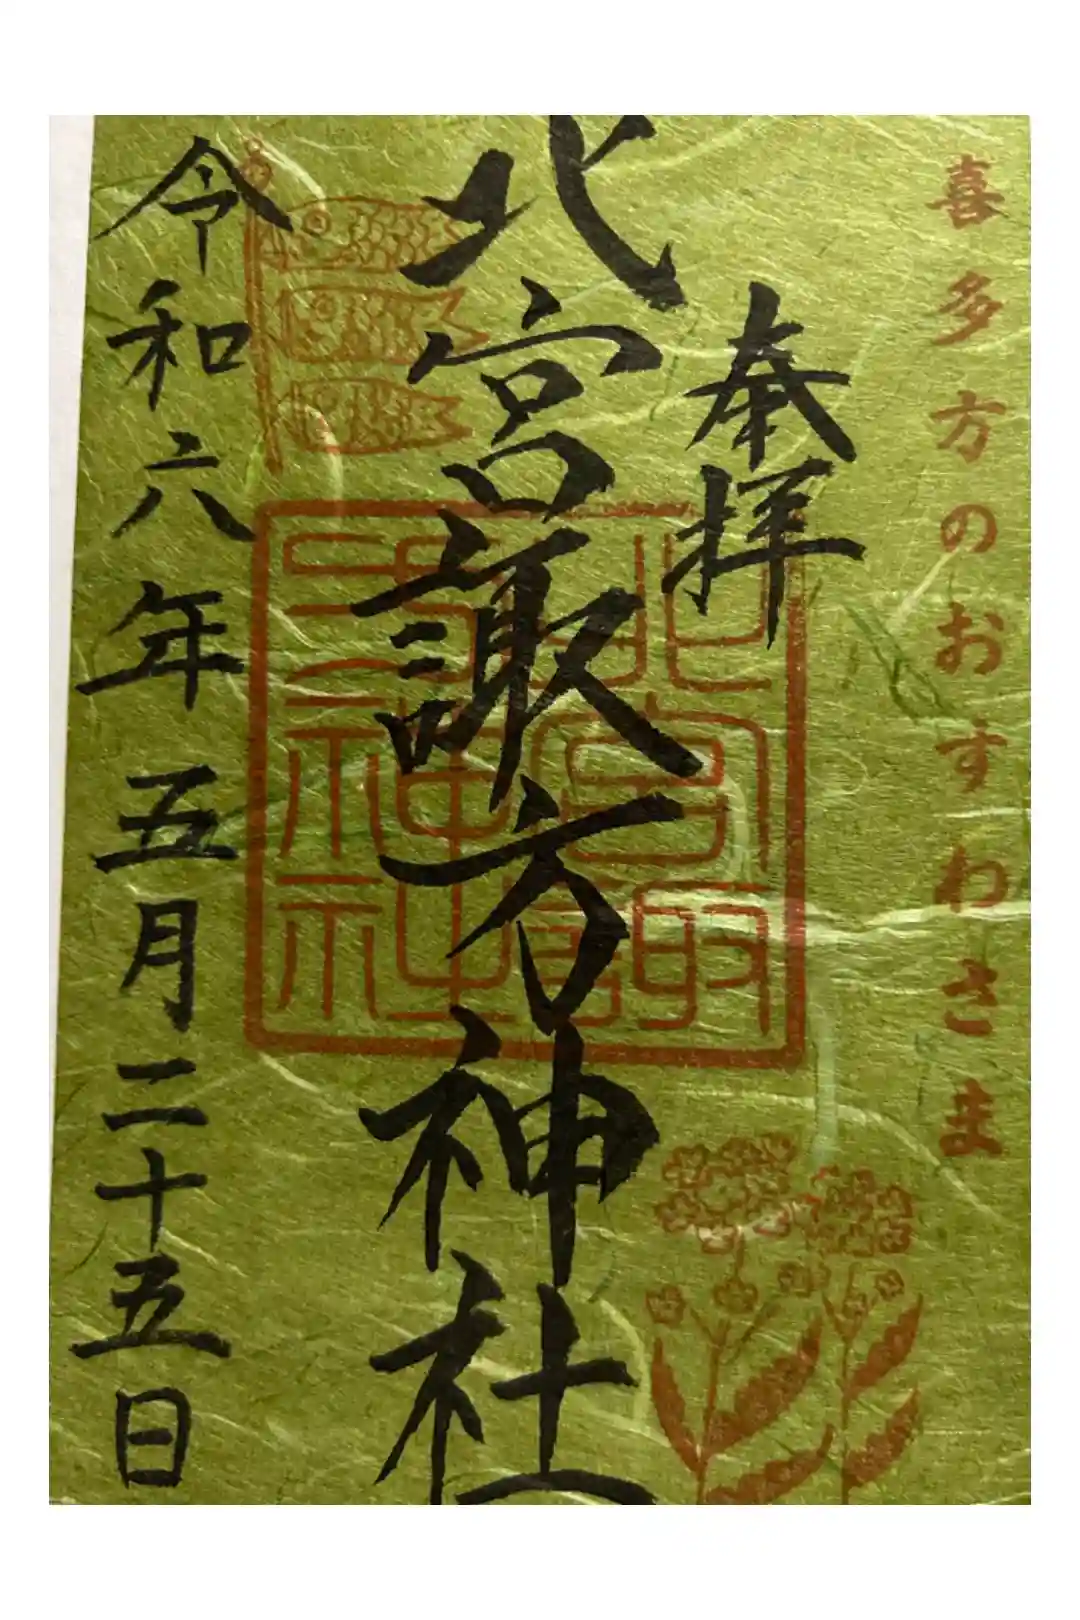 喜多方のおすわさま
奉拝
北宮諏方神社
北宮諏方神社
令和六年五月二十五日